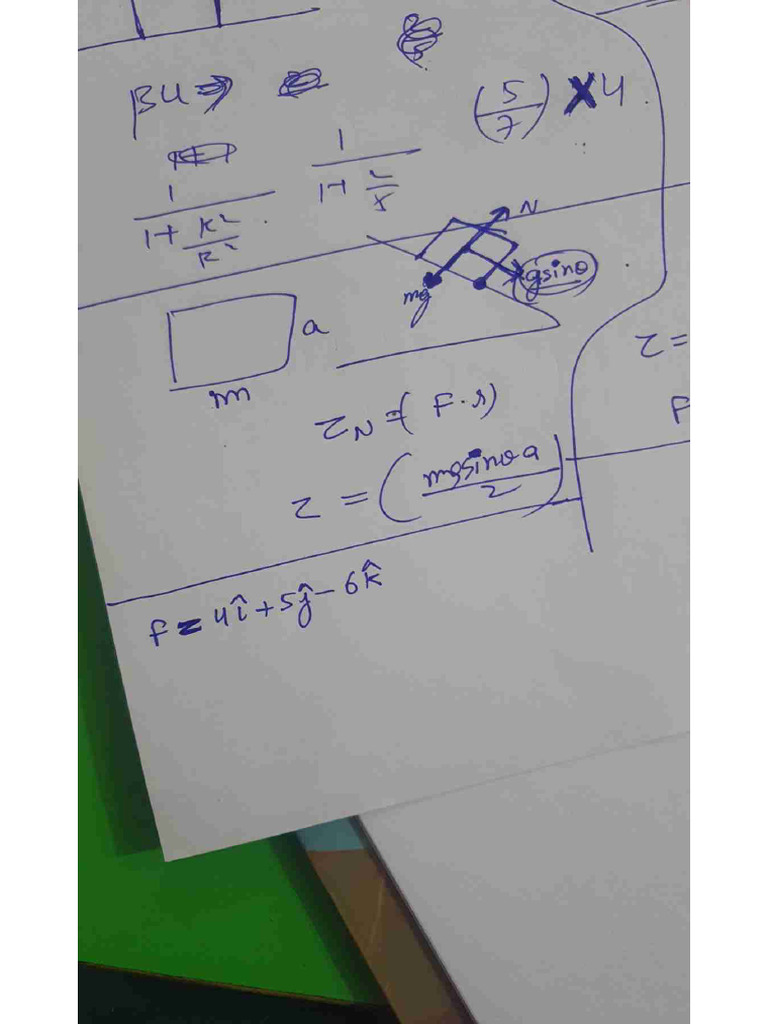 βu ⇒
(5/7) × 4
1/(1+K²/R²)
1/(1+2/5)
N
mg
gsinθ
a
m
τ =
τN = (F·r)
F
τ = (mgsinθ a/2)
F = 4î + 5ĵ - 6k̂